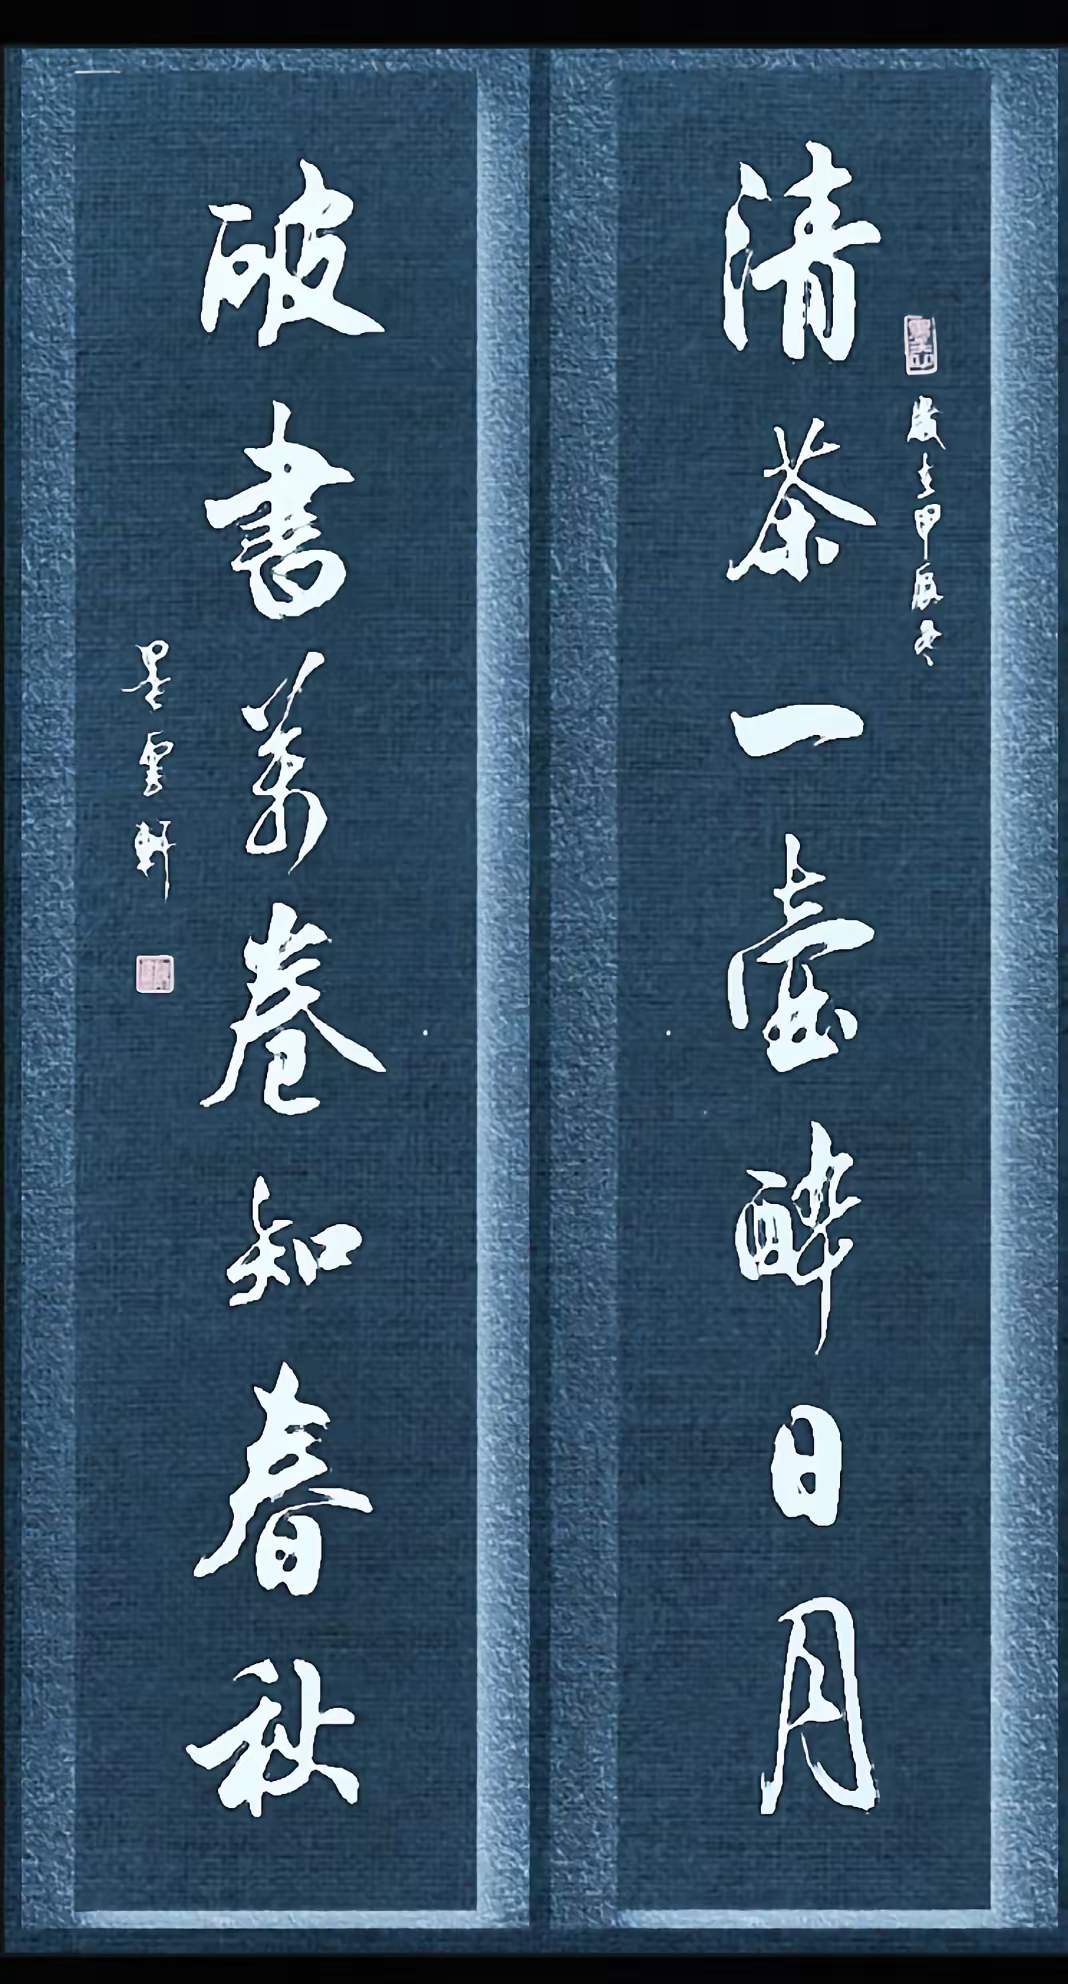 清茶一壺醉日月
歲在甲辰冬
破書萬卷知春秋
墨雲軒